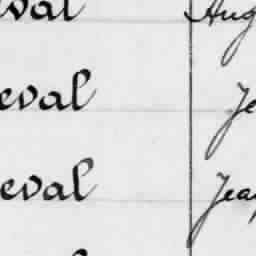 eval Hug
eval Je
eval Jea